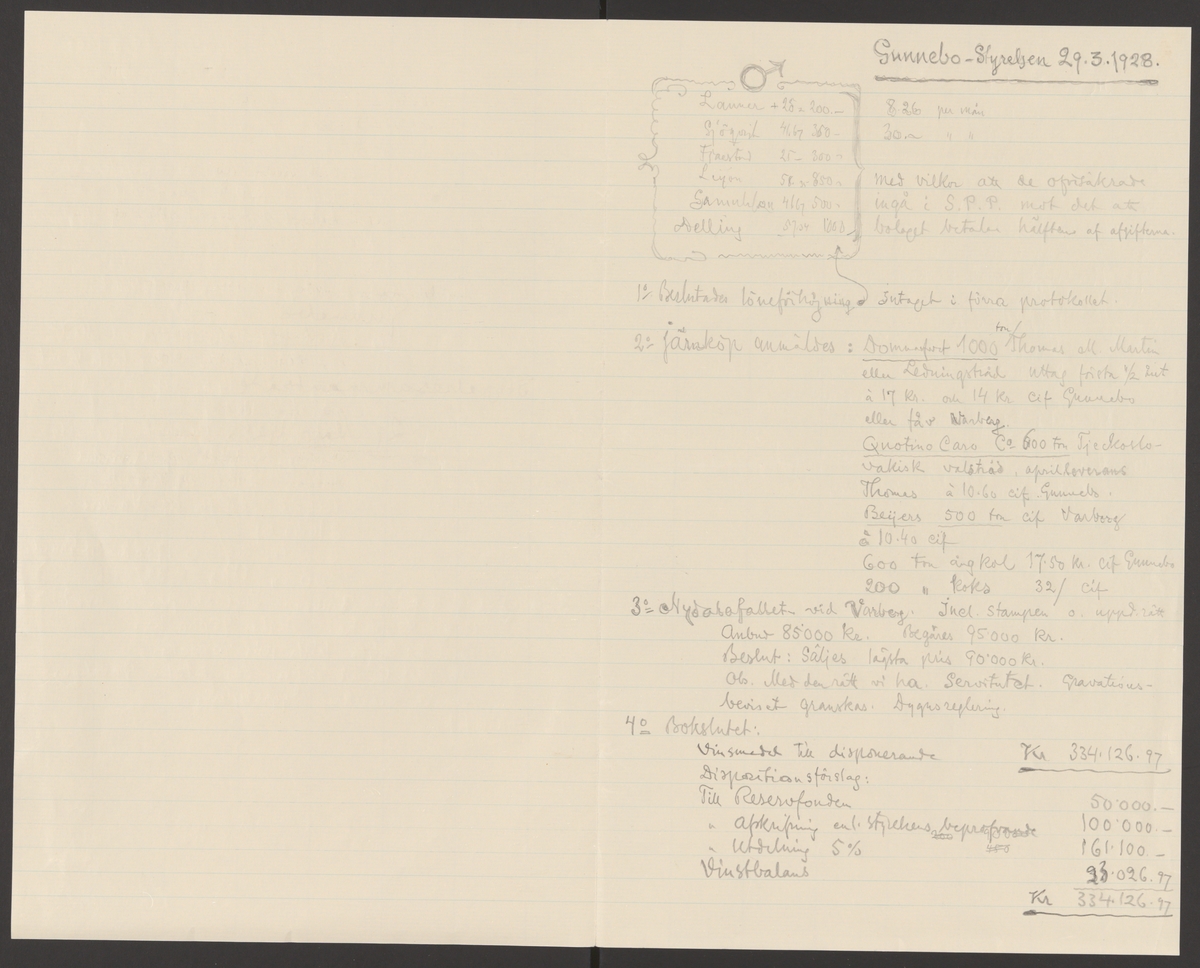 Gunnebo-Styrelsen 29.3.1928.
Lanner + 25 200.- 826 per mån
Sjöqvist 350- 30.- " "
25- 300-
850- med vilkor att de oförsäkrade
Samuelson 500- ingå i S.P.P. mot det att
Welling 1000 bolaget betalar hälften af afgifterna.
1º Beslutades löneförhöjning intaget i förra protokollet.
2º Järnköp anmäldes: Domnarfvet 1000 ton/ Thomas och Martin
eller Ledningstråd uttag första 1/2 året
à 17 Kr. och 14 Kr cif Gunnebo
eller Varberg.
Quotino Caro Cº 600 ton Tjeckoslo-
vakisk valstråd, aprilleverans
Thomas à 10.60 cif Gunnebo.
Beijers 500 ton cif Varberg
à 10.40 cif
600 ton ångkol 17.50 Kr. cif Gunnebo
200 " koks 32/ cif
3º Nydalafallet vid Varberg. Incl. Stampen o. uppd.rätt
Anbud 85'000 Kr. Begäres 95'000 Kr.
Beslut: Säljes lägsta pris 90'000 Kr.
Ob. Med den rätt vi ha. Servitutet. Gravations-
beviset granskas. Dygnsreglering.
4º Bokslutet:
Vinsmedel till disponerande Kr 334.126.97
Dispositionsförslag:
Till Reservfonden 50'000.-
" Afskrifning enl. styrelsens 100'000.-
" Utdelning 5% 161.100.-
Vinstbalans 23.026.97
Kr 334.126.97